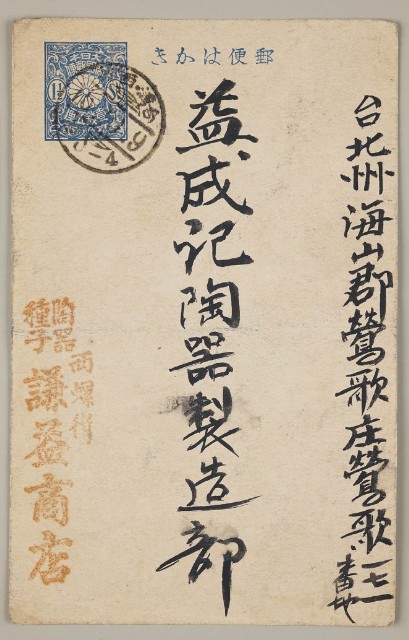 郵便はかき
台北州海山郡鶯歌庄鶯歌一七一番地
益成記陶器製造部
陶器
種子
西螺街
謙益商店
1½